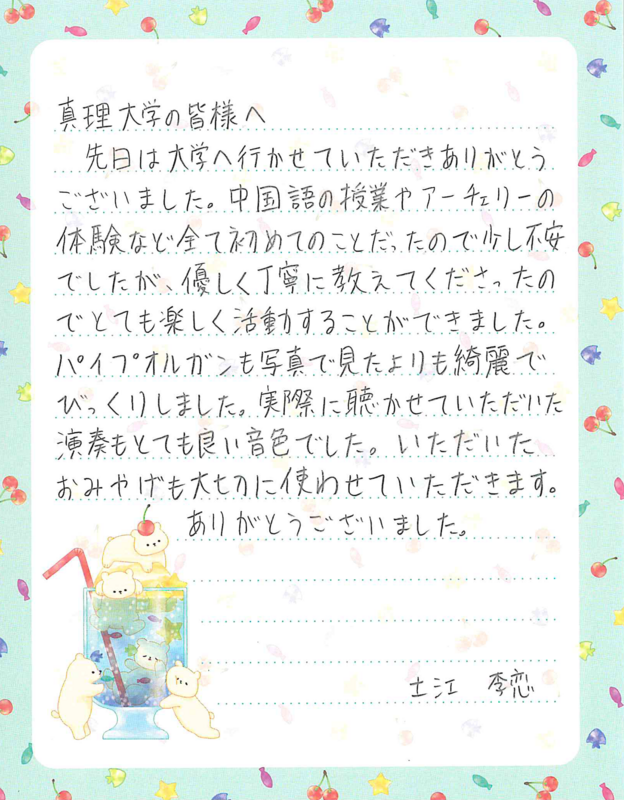 真理大学の皆様へ
先日は大学へ行かせていただきありがとう
ございました。中国語の授業やアーチェリーの
体験など全て初めてのことだったので少し不安
でしたが、優しく丁寧に教えてくださったの
でとても楽しく活動することができました。
パイプオルガンも写真で見たよりも綺麗で
びっくりしました。実際に聴かせていただいた
演奏もとても良い音色でした。いただいた
おみやげも大切に使わせていただきます。
ありがとうございました。
土江 李恋